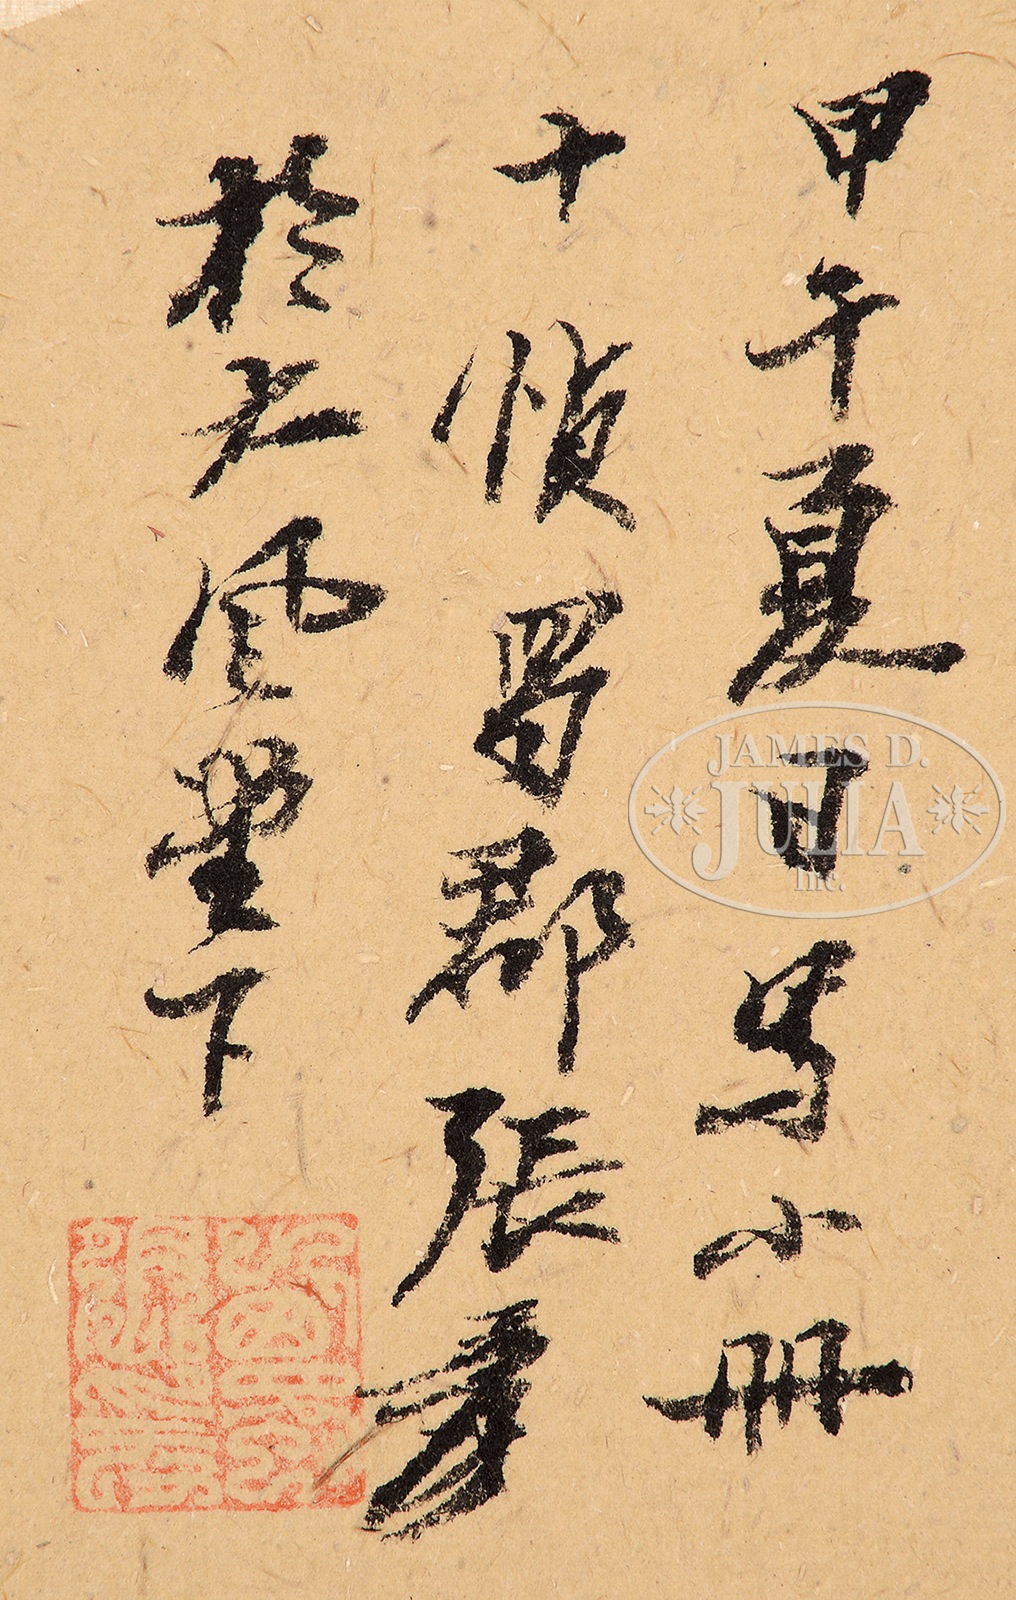 甲午夏日写小册
十幀蜀郡張爰
於大風堂下
JAMES D.
JULIA
Inc.